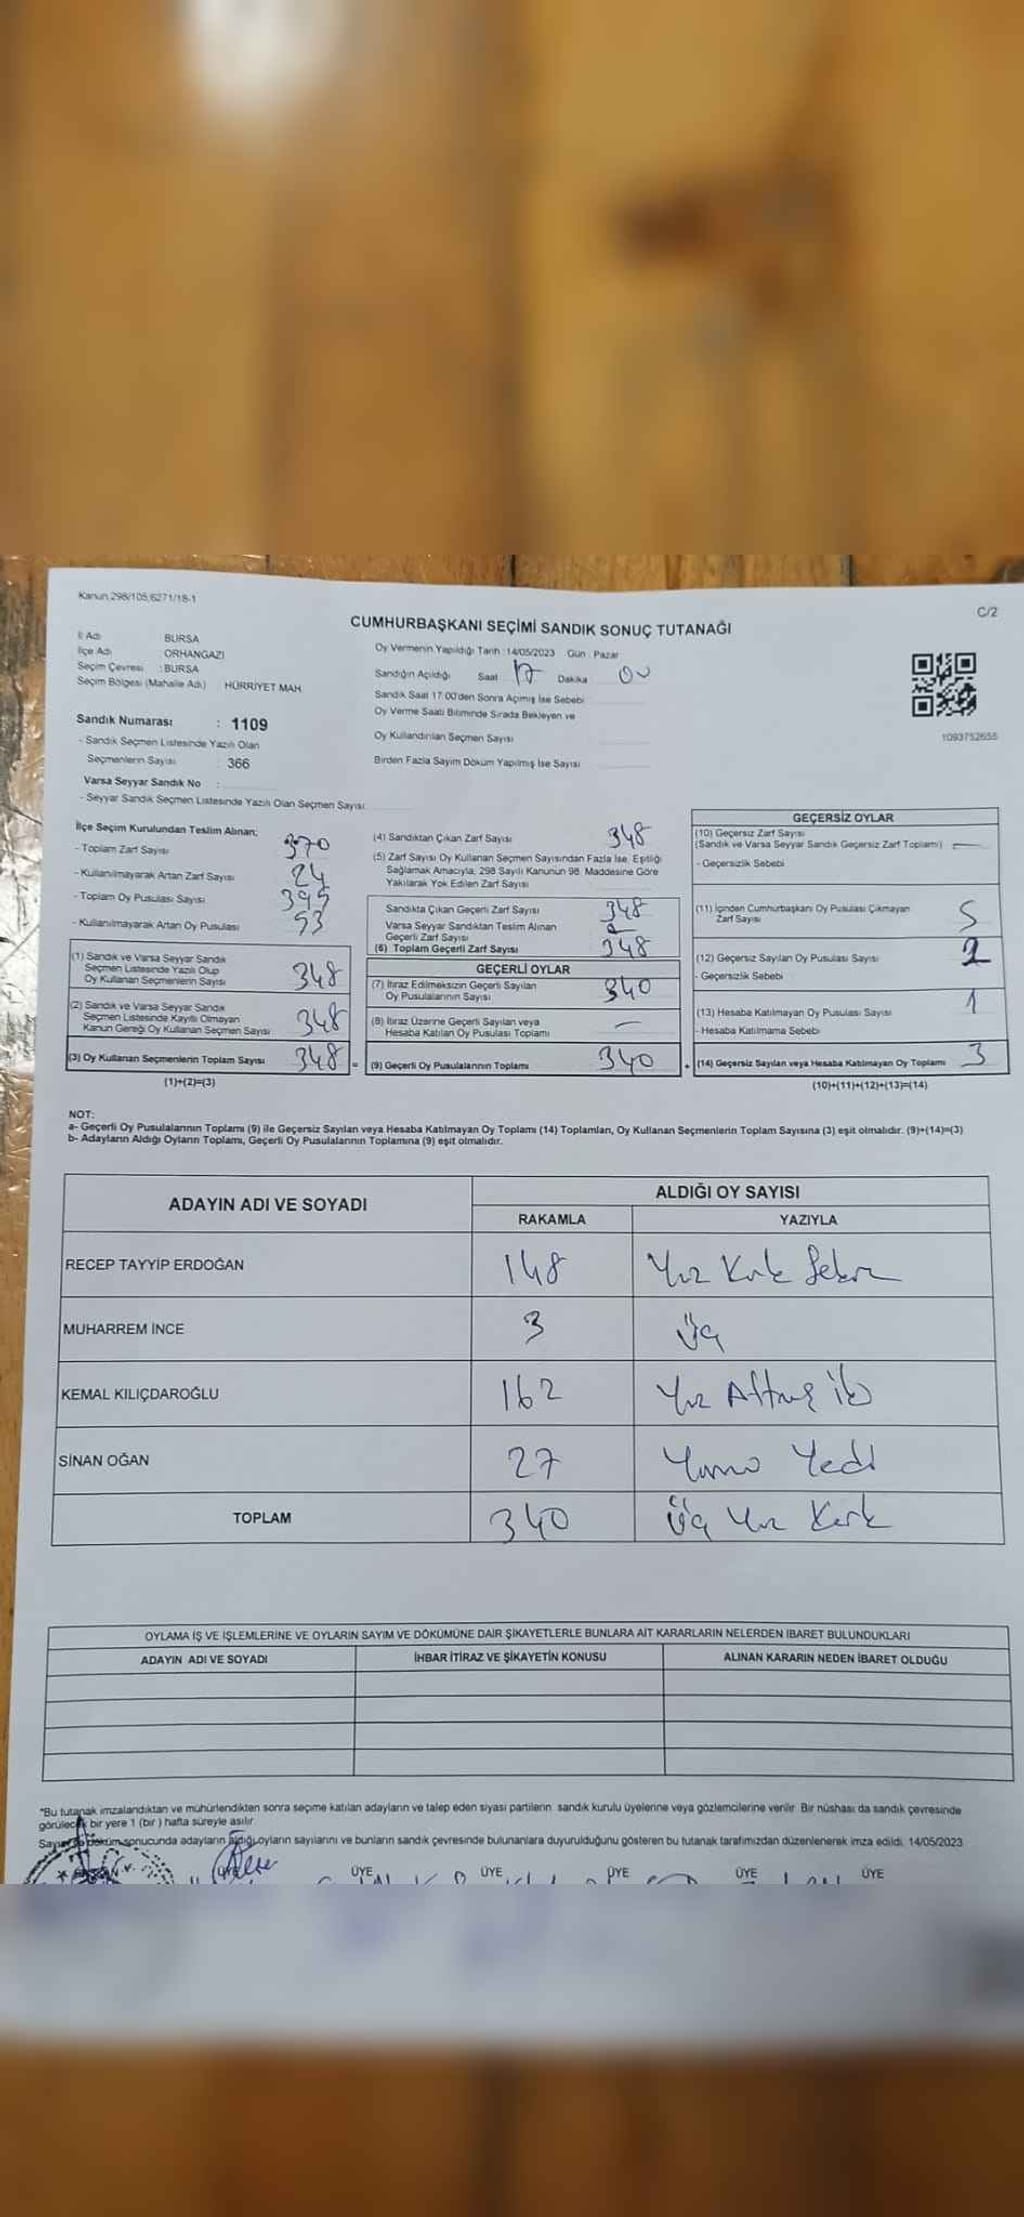 Kanun 298/105,6271/18-1
C/2
CUMHURBAŞKANI SEÇİMİ SANDIK SONUÇ TUTANAĞI
İl Adı BURSA
İlçe Adı ORHANGAZİ
Seçim Çevresi : BURSA
Seçim Bölgesi (Mahalle Adı) HÜRRİYET MAH.
Sandık Numarası : 1109
- Sandık Seçmen Listesinde Yazılı Olan
Seçmenlerin Sayısı : 366
Varsa Seyyar Sandık No :
- Seyyar Sandık Seçmen Listesinde Yazılı Olan Seçmen Sayısı
Oy Vermenin Yapıldığı Tarih : 14/05/2023 Gün : Pazar
Sandığın Açıldığı Saat 17 Dakika 00
Sandık Saat 17:00'den Sonra Açılmış İse Sebebi
Oy Verme Saati Bitiminde Sırada Bekleyen ve
Oy Kullandırılan Seçmen Sayısı
Birden Fazla Sayım Döküm Yapılmış İse Sayısı
1093752655
İlçe Seçim Kurulundan Teslim Alınan;
- Toplam Zarf Sayısı 370
- Kullanılmayarak Artan Zarf Sayısı 24
- Toplam Oy Pusulası Sayısı
- Kullanılmayarak Artan Oy Pusulası 53
(1) Sandık ve Varsa Seyyar Sandık
Seçmen Listesinde Yazılı Olup
Oy Kullanan Seçmenlerin Sayısı 348
(2) Sandık ve Varsa Seyyar Sandık
Seçmen Listesinde Kayıtlı Olmayan
Kanun Gereği Oy Kullanan Seçmen Sayısı 348
(3) Oy Kullanan Seçmenlerin Toplam Sayısı 348 =
(1)+(2)=(3)
(4) Sandıktan Çıkan Zarf Sayısı 348
(5) Zarf Sayısı Oy Kullanan Seçmen Sayısından Fazla İse, Eşitliği
Sağlamak Amacıyla, 298 Sayılı Kanunun 98. Maddesine Göre
Yakılarak Yok Edilen Zarf Sayısı
Sandıkta Çıkan Geçerli Zarf Sayısı 348
Varsa Seyyar Sandıktan Teslim Alınan
Geçerli Zarf Sayısı
(6) Toplam Geçerli Zarf Sayısı 348
GEÇERLİ OYLAR
(7) İtiraz Edilmeksizin Geçerli Sayılan
Oy Pusulalarının Sayısı 340
(8) İtiraz Üzerine Geçerli Sayılan veya
Hesaba Katılan Oy Pusulası Toplamı —
(9) Geçerli Oy Pusulalarının Toplamı 340 +
GEÇERSİZ OYLAR
(10) Geçersiz Zarf Sayısı
(Sandık ve Varsa Seyyar Sandık Geçersiz Zarf Toplamı) —
- Geçersizlik Sebebi
(11) İçinden Cumhurbaşkanı Oy Pusulası Çıkmayan
Zarf Sayısı 5
(12) Geçersiz Sayılan Oy Pusulası Sayısı 2
- Geçersizlik Sebebi
(13) Hesaba Katılmayan Oy Pusulası Sayısı 1
- Hesaba Katılmama Sebebi
(14) Geçersiz Sayılan veya Hesaba Katılmayan Oy Toplamı 3
(10)+(11)+(12)+(13)=(14)
NOT:
a- Geçerli Oy Pusulalarının Toplamı (9) ile Geçersiz Sayılan veya Hesaba Katılmayan Oy Toplamı (14) Toplamları, Oy Kullanan Seçmenlerin Toplam Sayısına (3) eşit olmalıdır. (9)+(14)=(3)
b- Adayların Aldığı Oyların Toplamı, Geçerli Oy Pusulalarının Toplamına (9) eşit olmalıdır.
ADAYIN ADI VE SOYADI
ALDIĞI OY SAYISI
RAKAMLA YAZIYLA
RECEP TAYYİP ERDOĞAN 148 Yüz Kırk Sekiz
MUHARREM İNCE 3 Üç
KEMAL KILIÇDAROĞLU 162 Yüz Altmış iki
SİNAN OĞAN 27 Yirmi Yedi
TOPLAM 340 Üç Yüz Kırk
OYLAMA İŞ VE İŞLEMLERİNE VE OYLARIN SAYIM VE DÖKÜMÜNE DAİR ŞİKAYETLERLE BUNLARA AİT KARARLARIN NELERDEN İBARET BULUNDUKLARI
ADAYIN ADI VE SOYADI İHBAR İTİRAZ VE ŞİKAYETİN KONUSU ALINAN KARARIN NEDEN İBARET OLDUĞU
*Bu tutanak imzalandıktan ve mühürlendikten sonra seçime katılan adayların ve talep eden siyasi partilerin sandık kurulu üyelerine veya gözlemcilerine verilir. Bir nüshası da sandık çevresinde
görülecek bir yere 1 (bir) hafta süreyle asılır.
Sayım ve döküm sonucunda adayların aldığı oyların sayılarını ve bunların sandık çevresinde bulunanlara duyurulduğunu gösteren bu tutanak tarafımızdan düzenlenerek imza edildi. 14/05/2023
ÜYE ÜYE ÜYE ÜYE ÜYE ÜYE